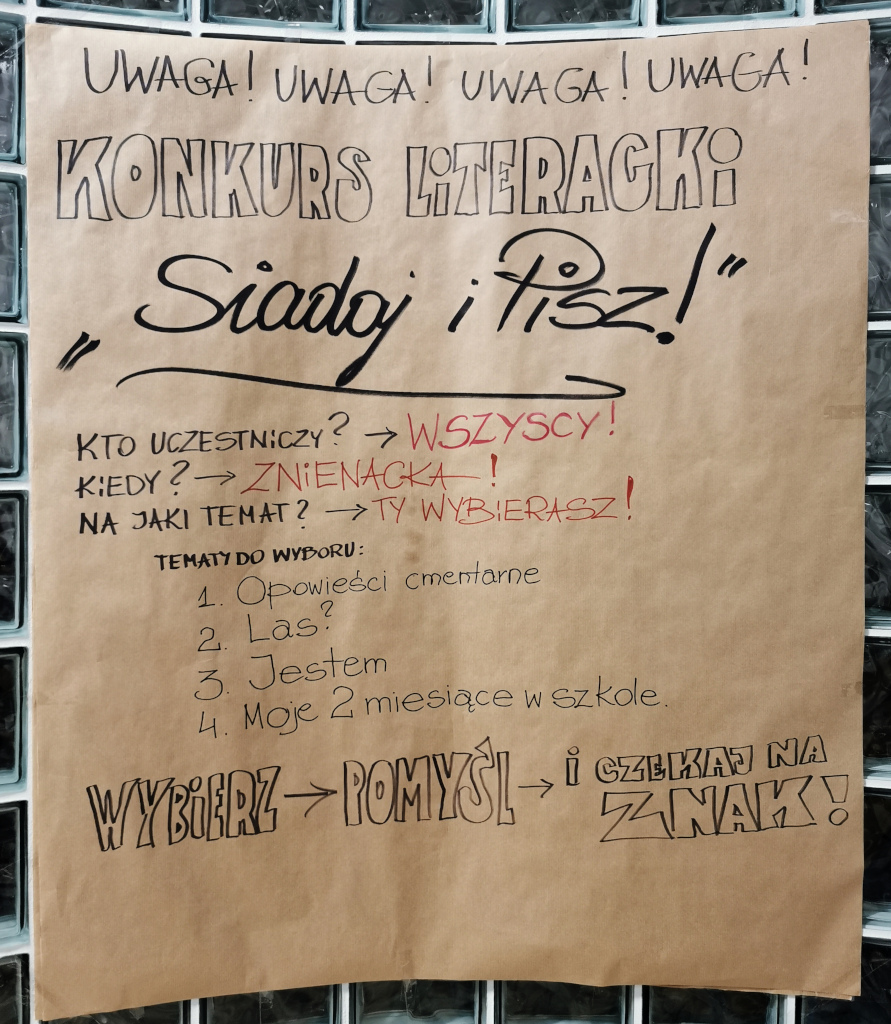 UWAGA! UWAGA! UWAGA! UWAGA!
KONKURS LITERACKI
„Siadaj i Pisz!”
KTO UCZESTNICZY? → WSZYSCY!
KIEDY? → ZNIENACKA!
NA JAKI TEMAT? → TY WYBIERASZ!
TEMATY DO WYBORU:
1. Opowieści cmentarne
2. Las?
3. Jestem
4. Moje 2 miesiące w szkole.
WYBIERZ → POMYŚL → i CZEKAJ NA
ZNAK!